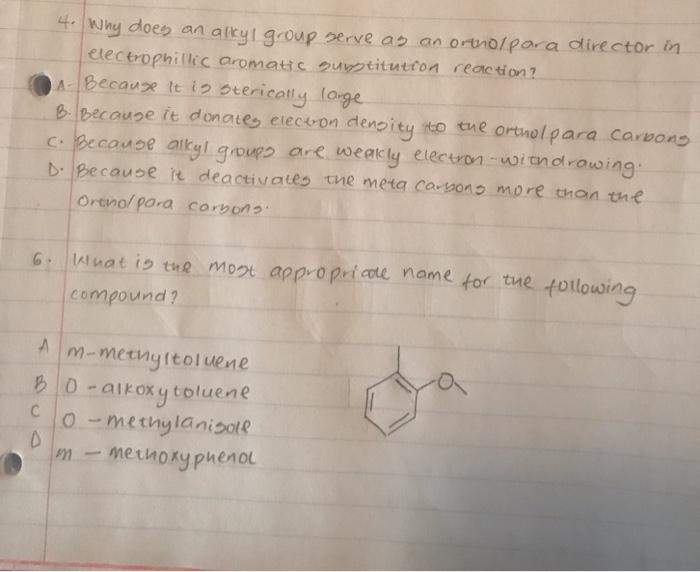 4. Why does an alkyl group serve as an ortho/para director in
electrophillic aromatic substitution reaction?
A. Because it is sterically large
B. Because it donates electron density to the ortho/para carbons
C. Because alkyl groups are weakly electron-withdrawing.
D. Because it deactivates the meta carbons more than the
ortho/para carbons.
6. What is the most appropriate name for the following
compound?
A m-methyltoluene
B O-alkoxytoluene
C O-methylanisole
D m-methoxyphenol
O